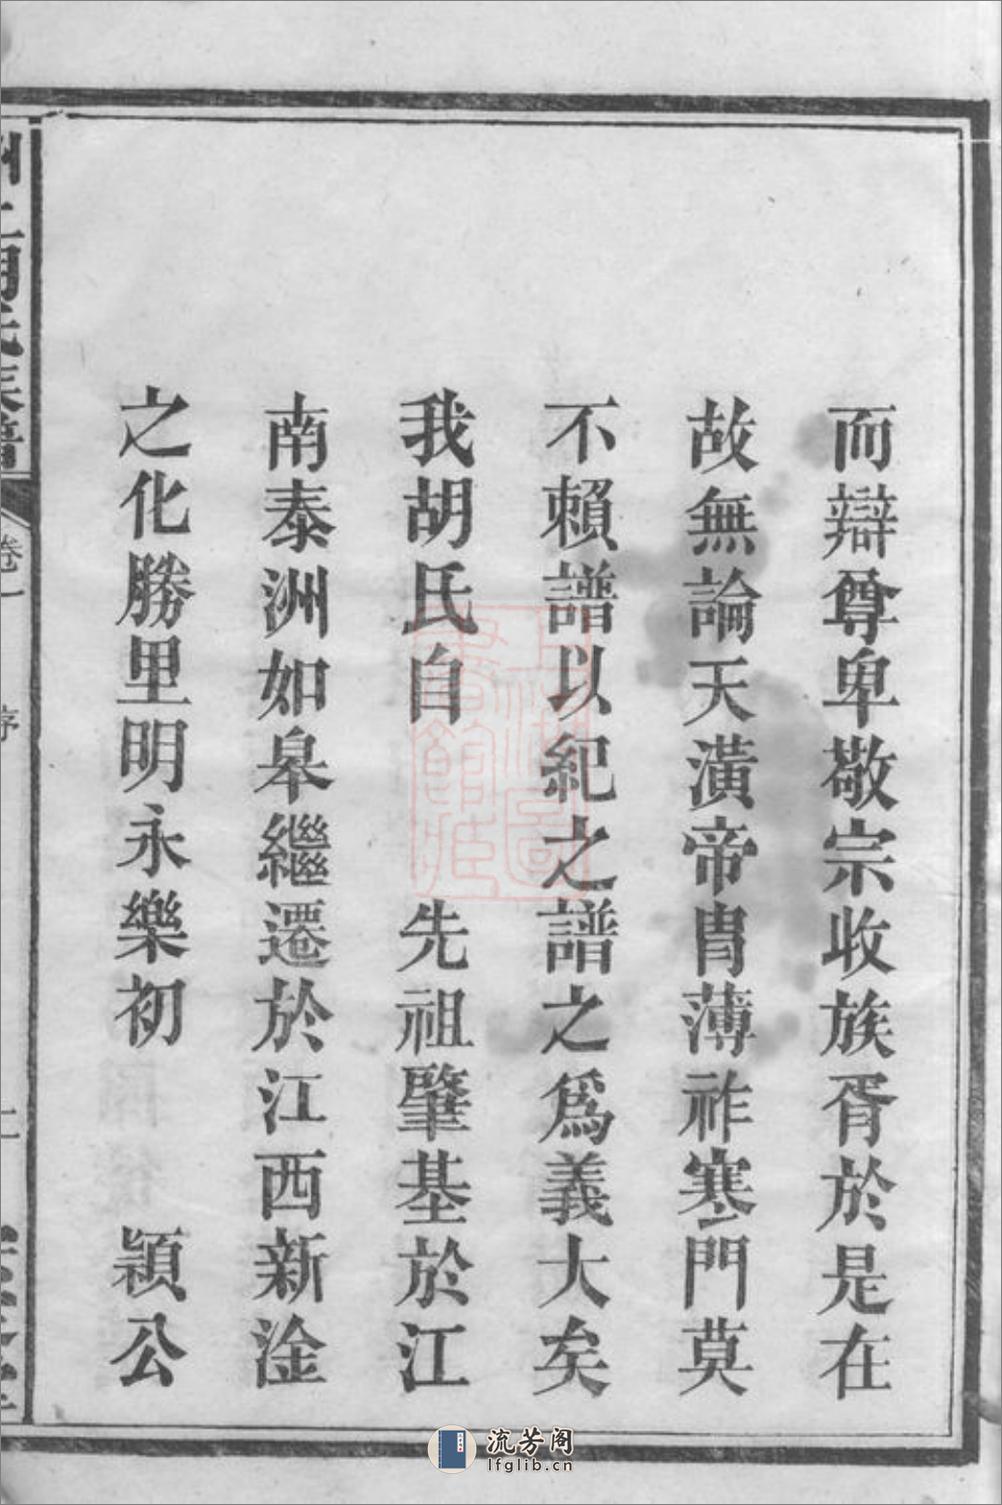 而辯尊卑敬宗收族胥於是在
故無論天潢帝胄薄祚寒門莫
不賴譜以紀之譜之爲義大矣
我胡氏自 先祖肇基於江
南泰洲如皋繼遷於江西新淦
之化勝里明永樂初 穎公
胡氏族譜
卷一 序
流芳阁
lfglib.cn